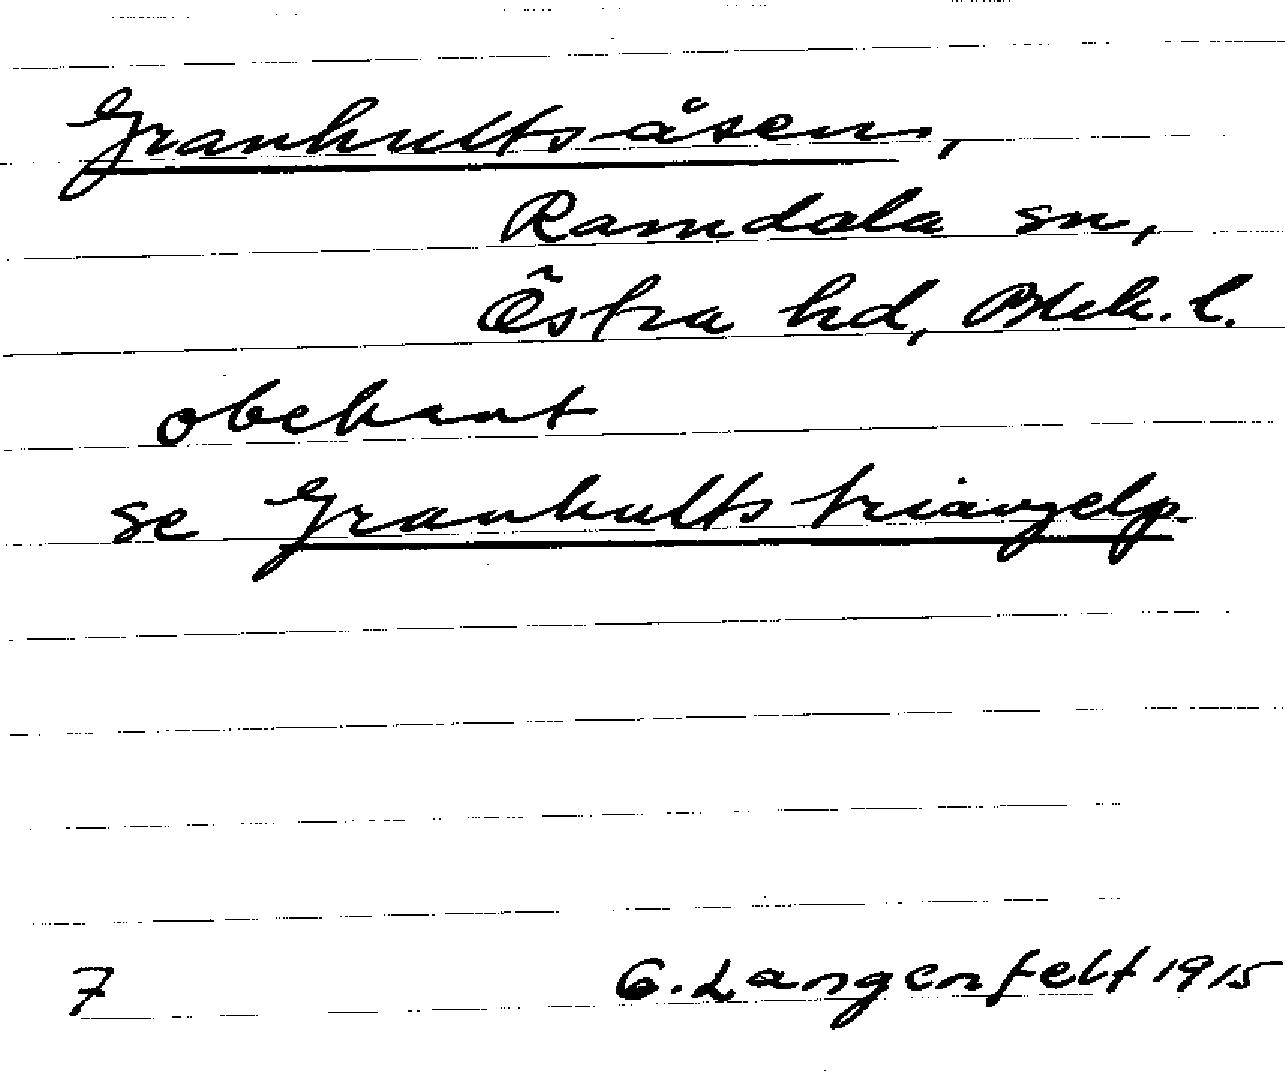 Granhultsåsen,
Ramdala sn,
Östra hd, Blek. l.
obekant
se Granhults triangelp.
7 G. Langenfelt 1915